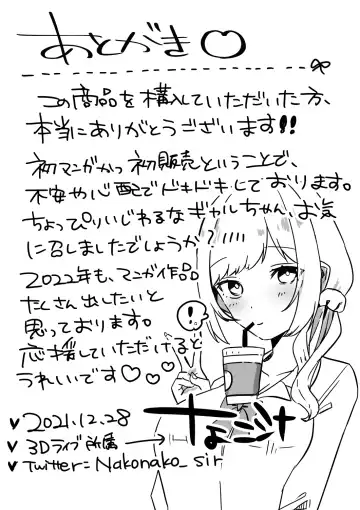 あとがき♡
この商品を購入していただいた方、
本当にありがとうございます!!
初マンガかつ初販売ということで、
不安や心配でドキドキしております。
ちょっぴりいじわるなギャルちゃん、お気
に召しましたでしょうか?
2022年も、マンガ作品
たくさん出したいと
思っております。
応援していただけると
うれしいです♡♡♡
!
♥2021.12.28
♥3Dライブ所属
♥Twitter:Nakonako_sir